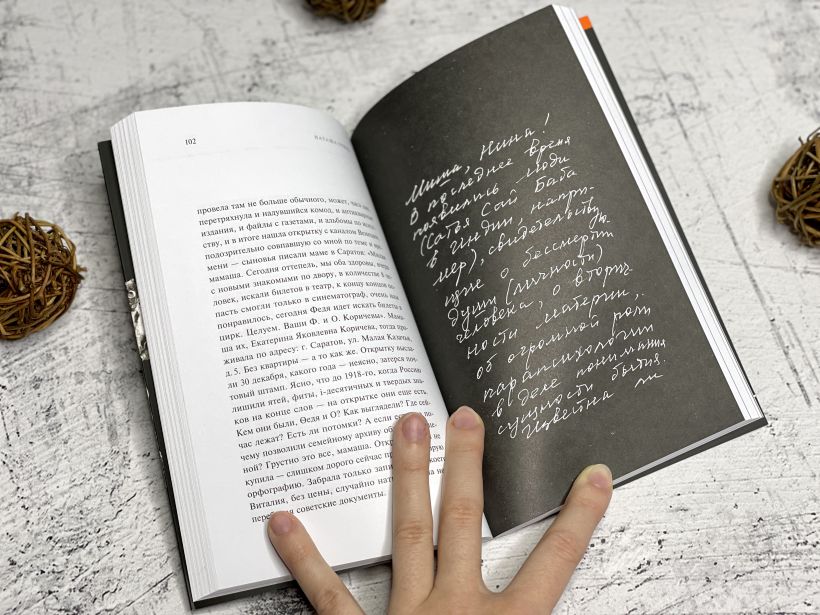 102
НАТАША
провела там не больше обычного, может, часа
перетряхнула и надувшийся комод, и антикварные
издания, и файлы с газетами, и альбомы по искус-
ству, и в итоге нашла открытку с каналом Венеции
подозрительно совпавшую со мной по теме и
мени — сыновья писали маме в Саратов: «Милая
мамаша. Сегодня оттепель, мы оба здоровы,
с новыми знакомыми по двору, в количестве 8
ловек, искали билетов в театр, к концу концов по-
пасть смогли только в синематограф, очень нам
понравилось, сегодня Федя идет искать билеты в
цирк. Целуем. Ваши Ф. и О. Коричевы». Мама-
ша их, Екатерина Яковлевна Коричева, тогда про-
живала по адресу: г. Саратов, ул. Малая Казачья,
д. 5. Без квартиры — а то как же. Открытку высла-
ли 30 декабря, какого года — неясно, затерся поч-
товый штамп. Ясно, что до 1918-го, когда Россию
лишили ятей, фиты, i-десятичных и твердых зна-
ков на конце слов — на открытке они еще есть.
Кем они были, Ѳедя и О? Как выглядели? Где сей-
час лежат? Есть ли потомки? А если есть, по-
чему позволили семейному архиву
ной? Грустно это все, мамаша. не
купила — слишком дорого сейчас
орфографию. Забрала только
Виталия, без цены, случайно
советские документы.
Миша, Нина!
В последнее время
появились люди
(Сатья Сай Баба
в Индии, напри-
мер), свидетельству
ющие о бессмертии
души (личности)
человека, о вторич
ности материи,
об огромной роли
парапсихологии
в деле понимания
сущности бытия.
Известна ли